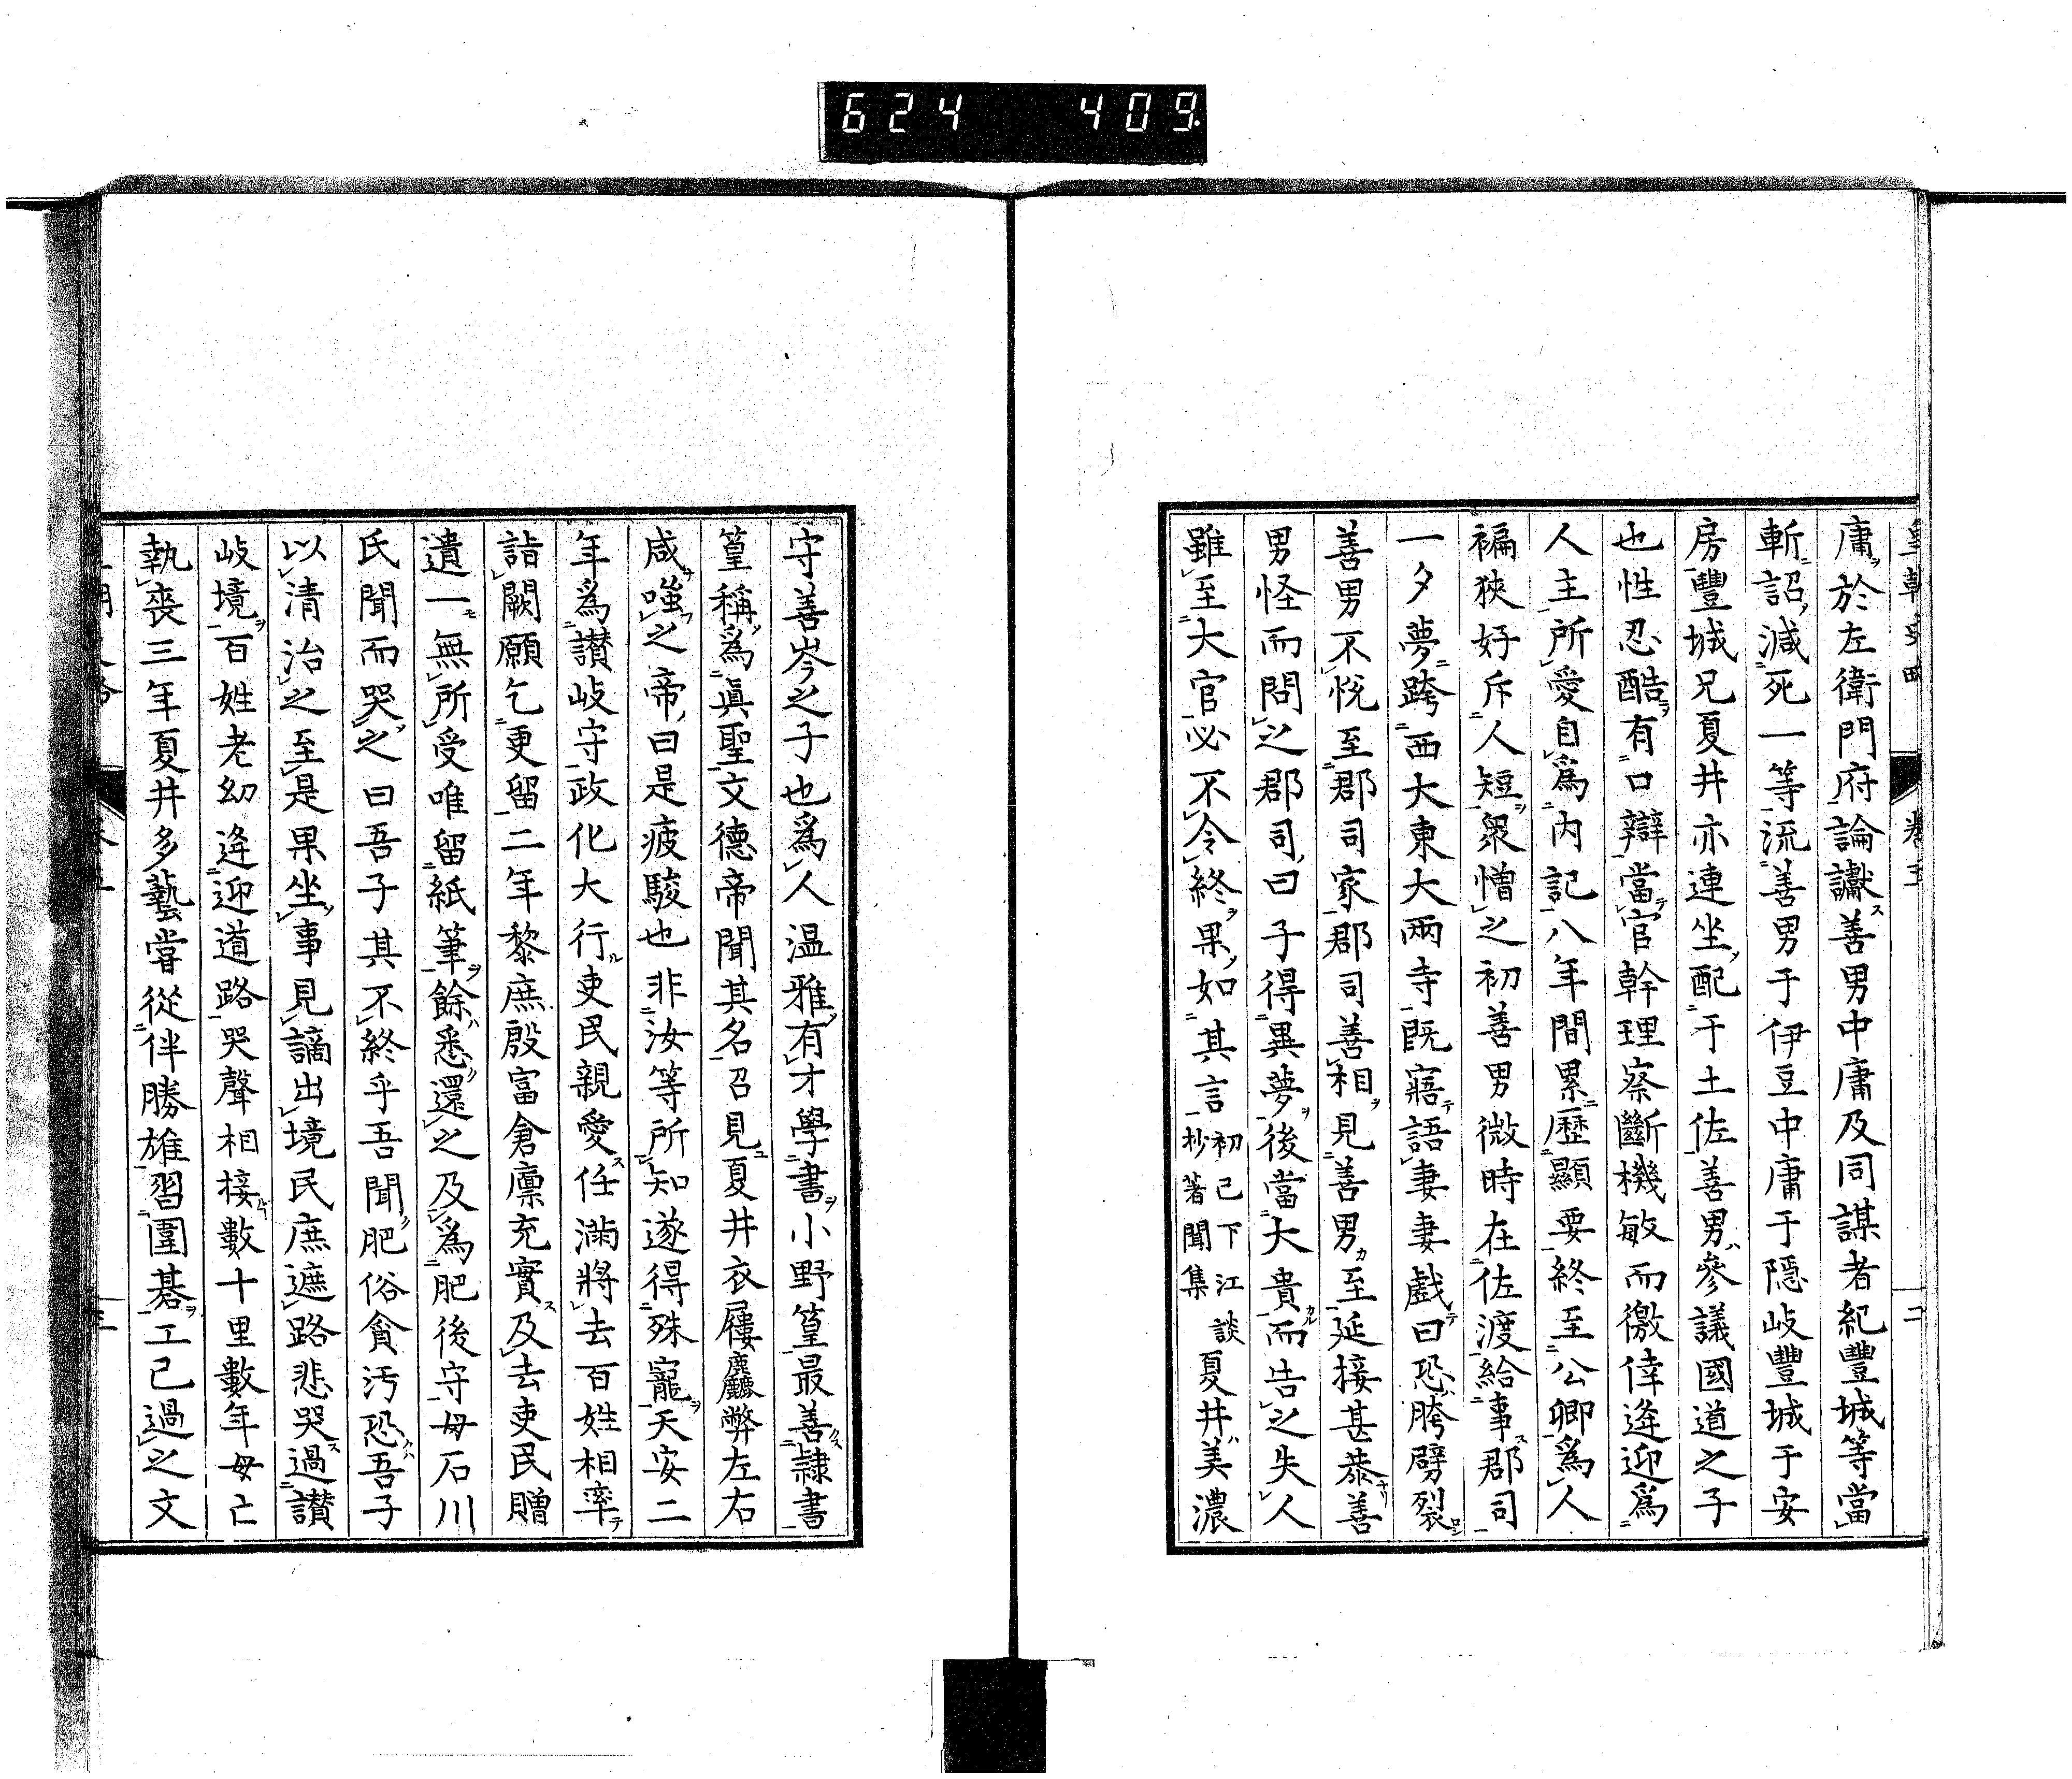 624 409
皇朝史略 卷五 二
庸ヲ於左衛門府論讞ス善男中庸及同謀者紀豐城等當
斬ニ詔減死一等流善男于伊豆中庸于隠岐豐城于安
房豐城兄夏井亦連坐配于土佐善男ハ參議國道之子
也性忍酷有口辯當官幹理察斷機敏而徼倖逢迎爲
人主所愛自爲内記八年間累歷顯要終至公卿爲人
褊狹好斥人短ヲ衆憎之初善男微時在佐渡給事ス郡司
一夕夢跨西大東大兩寺既寤テ語妻妻戲テ曰恐ハ胯劈裂
善男不悅至郡司家郡司善相ヲ見善男カ至延接甚恭善
男怪而問之郡司曰子得異夢ヲ後當大貴而告之失人
雖至大官必不令終ヲ果如其言初已下江談抄著聞集夏井ハ美濃
守善岑之子也爲人温雅有才學書ヲ小野篁最善隷書
篁稱爲眞聖文德帝聞其名召見夏井衣屨麤弊左右
咸嗤之帝曰是疲駿也非汝等所知遂得殊寵ヲ天安二
年爲讃岐守政化大行ル吏民親愛ス任滿將去百姓相率テ
詣闕願乞更留二年黎庶殷富倉廩充實ス及去吏民贈
遺一モ無所受唯留紙筆ヲ餘ハ悉還之及爲肥後守母石川
氏聞而哭之曰吾子其不終乎吾聞肥俗貪汚恐吾子
以清治之至是果坐事見謫出境民庶遮路悲哭ス過讃
岐境ヲ百姓老幼逢迎道路哭聲相接數十里數年母亡
執喪三年夏井多藝嘗從伴勝雄習圍碁ヲ工已過之文